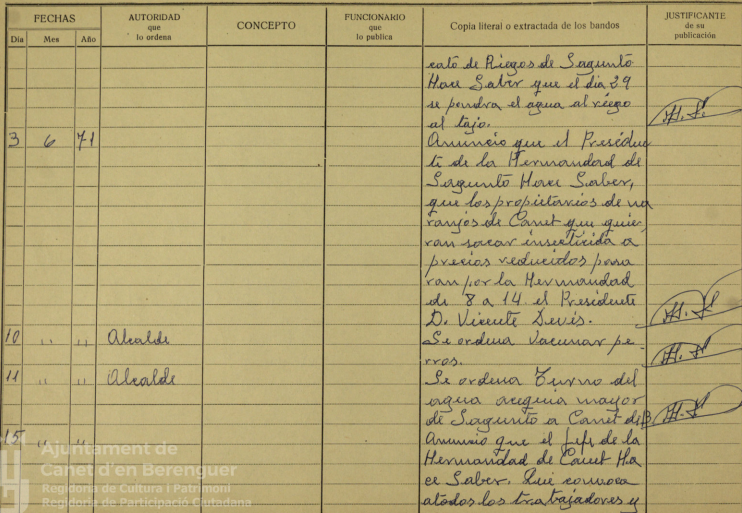 FECHAS
Día Mes Año
AUTORIDAD
que
lo ordena
CONCEPTO
FUNCIONARIO
que
lo publica
Copia literal o extractada de los bandos
JUSTIFICANTE
de su
publicación
cato de Riegos de Sagunto
Hace Saber que el dia 29
se pondra el agua al riego
al tajo.
3 6 71 Anuncio que el Presiden
te de la Hermandad de
Sagunto Hace Saber,
que los propietarios de na
ranjos de Canet que quie
ran sacar insecticida a
precios reducidos pasa
ran por la Hermandad
de 8 a 14 el Presidente
D. Vicente Devis.
10 " " Alcalde Se ordena Vacunar pe-
rros.
11 " " Alcalde Se ordena Turno del
agua acequia mayor
de Sagunto a Canet de B
15 " " Anuncio que el Jefe de la
Hermandad de Canet Ha
ce Saber. Que convoca
atodos los trabajadores y
Ajuntament de
Canet d'en Berenguer
Regidoria de Cultura i Patrimoni
Regidoria de Participació Ciutadana